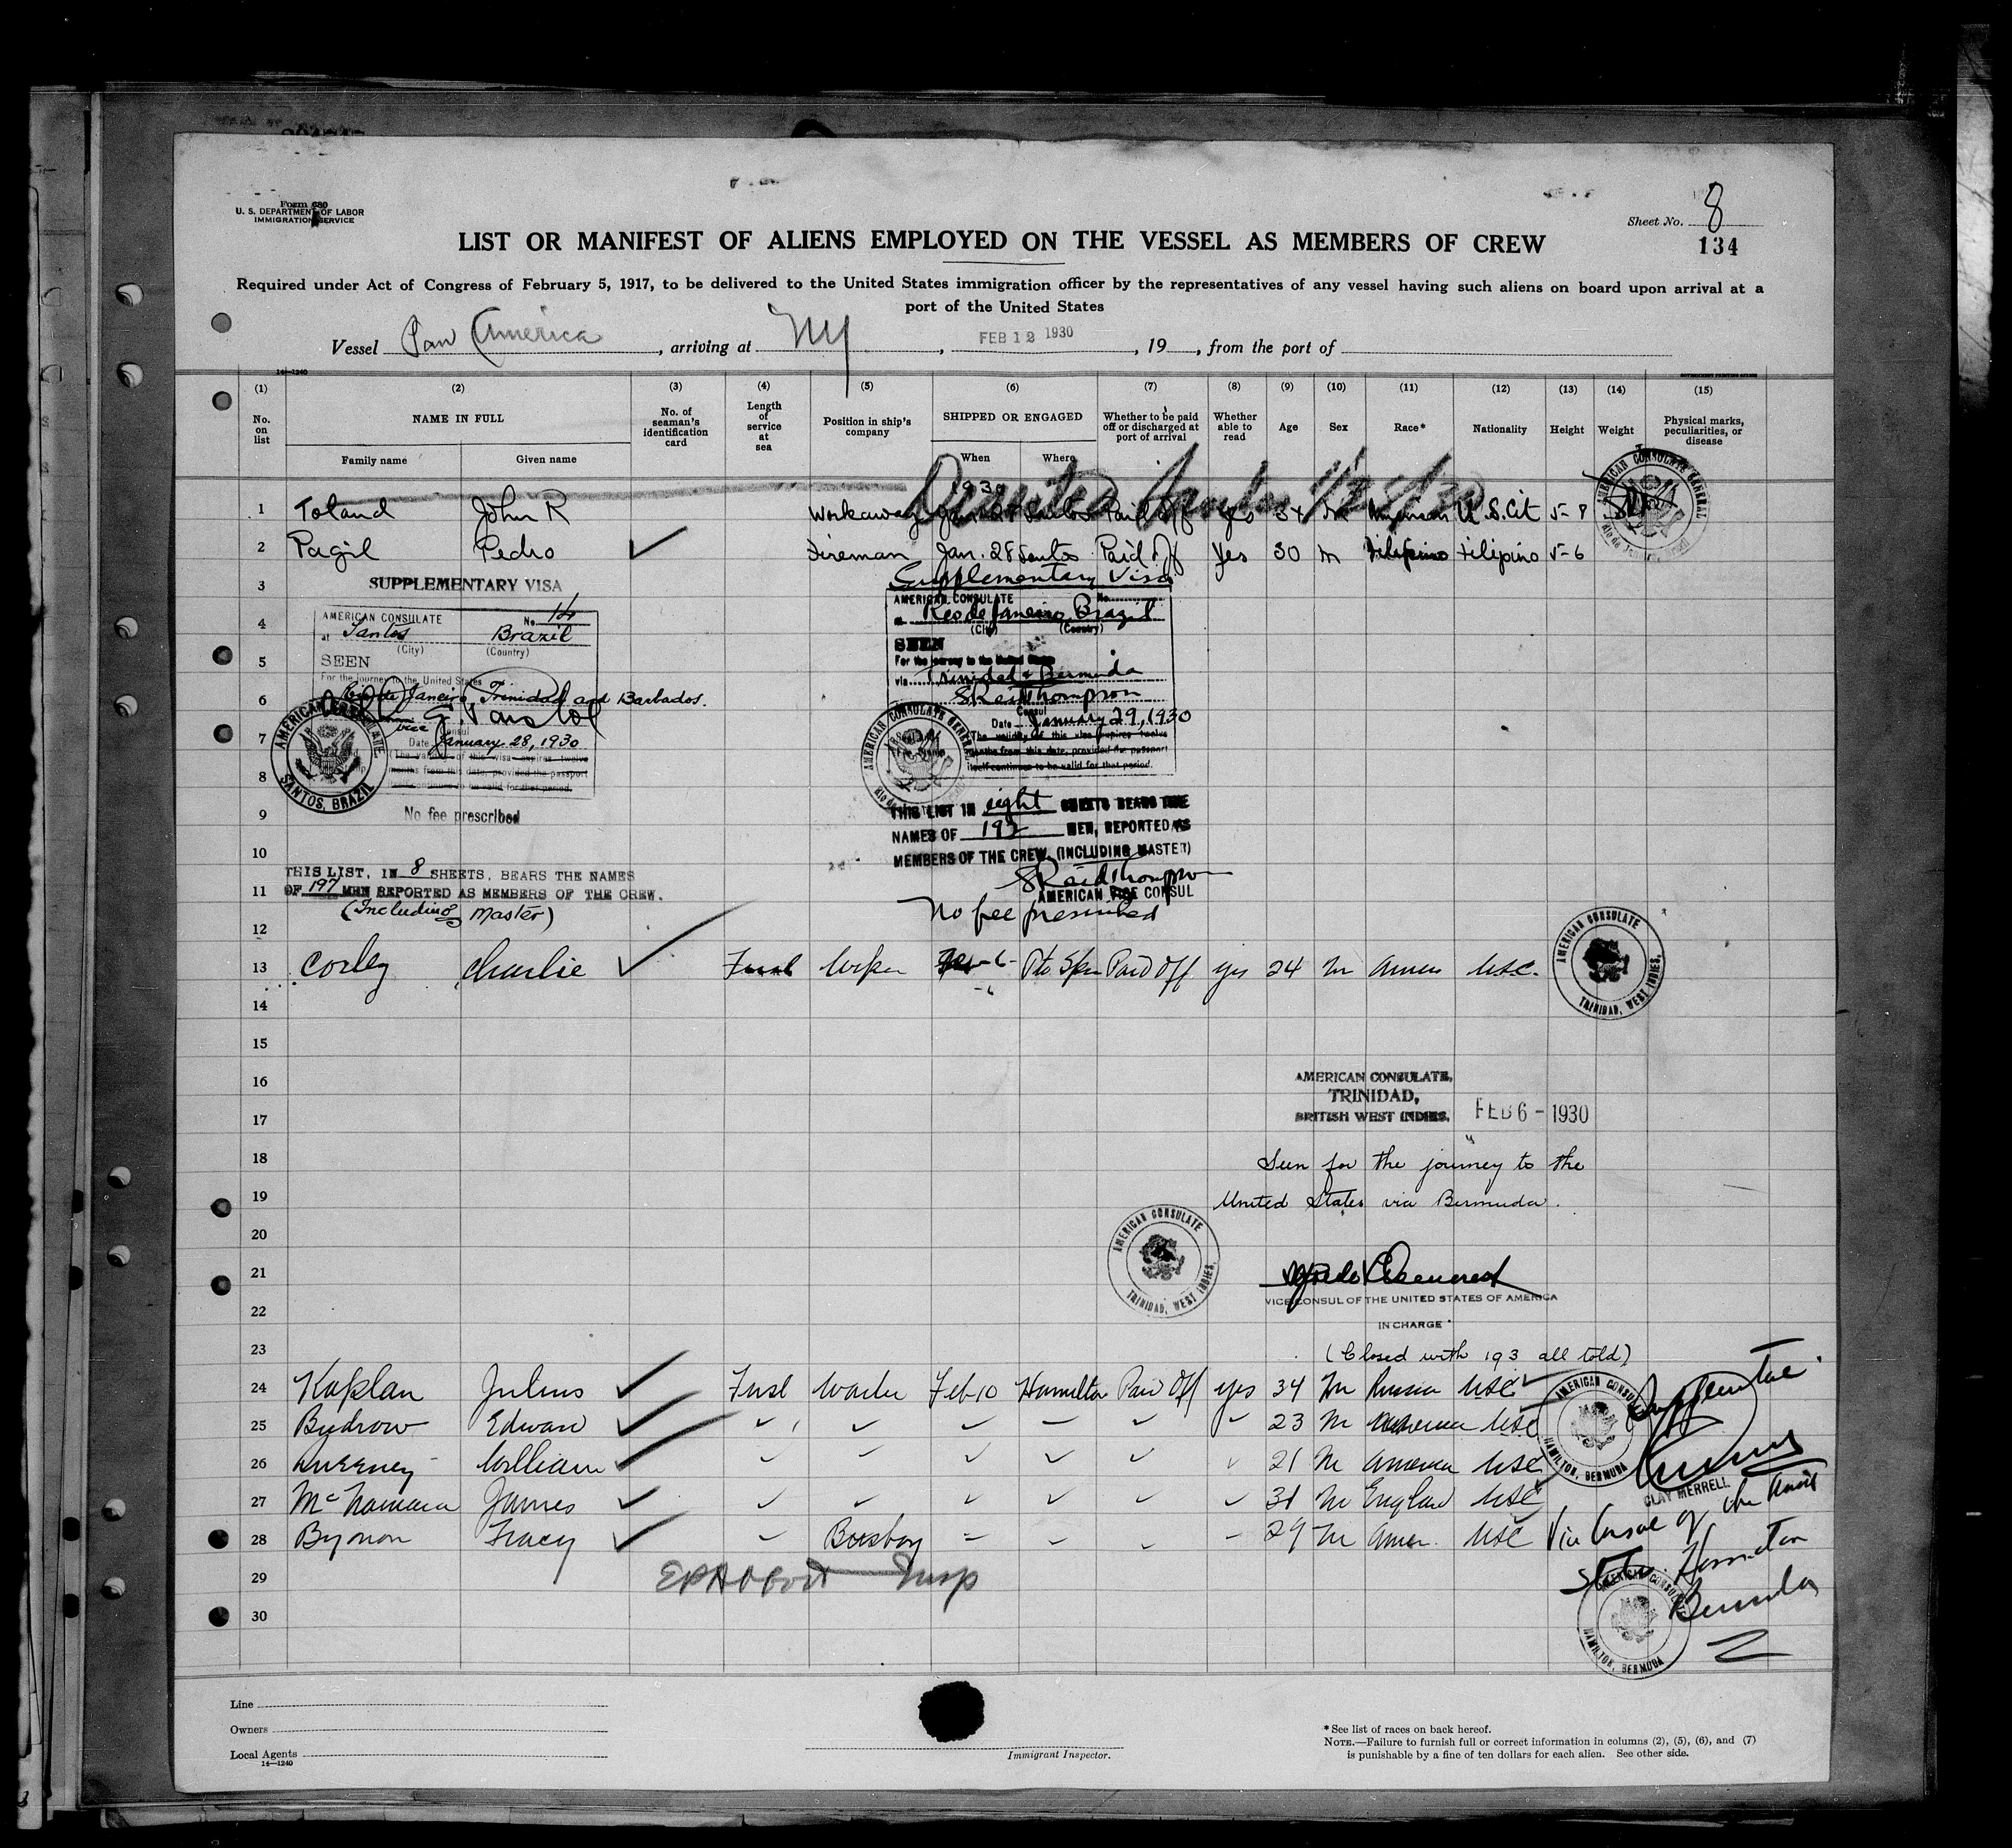 Form 680
U. S. DEPARTMENT OF LABOR
IMMIGRATION SERVICE
Sheet No. 8
134
LIST OR MANIFEST OF ALIENS EMPLOYED ON THE VESSEL AS MEMBERS OF CREW
Required under Act of Congress of February 5, 1917, to be delivered to the United States immigration officer by the representatives of any vessel having such aliens on board upon arrival at a
port of the United States
Vessel Pan America, arriving at NY, FEB 12 1930, 19, from the port of
14-1240
(1) (2) (3) (4) (5) (6) (7) (8) (9) (10) (11) (12) (13) (14) (15)
No. on list
NAME IN FULL
Family name
Given name
No. of seaman's identification card
Length of service at sea
Position in ship's company
SHIPPED OR ENGAGED
When
Where
Whether to be paid off or discharged at port of arrival
Whether able to read
Age
Sex
Race*
Nationality
Height
Weight
Physical marks, peculiarities, or disease
1930
Deserted Santos 1/28/30
1 Toland John R Workaway Jan 28 Santos Paid Off Yes 34 M American U.S. Cit 5-8
2 Pagil Pedro Fireman Jan. 28 Santos Paid Off Yes 30 M Filipino Filipino 5-6
AMERICAN CONSULATE GENERAL
Rio de Janeiro, Brazil
3
SUPPLEMENTARY VISA
AMERICAN CONSULATE No. 14
at Santos Brazil
(City) (Country)
SEEN
For the journey to the United States
Rio de Janeiro, Trinidad and Barbados.
vice Consul
Date January 28, 1930
(The validity of this visa expires twelve
months from this date, provided the passport
itself continues to be valid for that period.
AMERICAN CONSULATE
SANTOS, BRAZIL
No fee prescribed
THIS LIST, IN 8 SHEETS, BEARS THE NAMES
OF 197 MEN REPORTED AS MEMBERS OF THE CREW.
(Including Master)
Supplementary Visa
AMERICAN CONSULATE No.
at Rio de Janeiro Brazil
(City) (Country)
SEEN
For the journey to the United States
via Trinidad & Bermuda
S Reid Thompson
Consul
Date January 29, 1930
(The validity of this visa expires twelve
months from this date, provided the passport
itself continues to be valid for that period.
AMERICAN CONSULATE GENERAL
THIS LIST IN eight SHEETS BEARS THE
NAMES OF 192 MEN, REPORTED AS
MEMBERS OF THE CREW (INCLUDING MASTER)
S Reid Thompson
AMERICAN VICE CONSUL
No fee prescribed
4
5
6
7
8
9
10
11
12
13 Corley Charlie Wiper Feb-6- Pto Spn Paid Off yes 24 M Amer USC.
AMERICAN CONSULATE
TRINIDAD, WEST INDIES.
14
15
16
17
AMERICAN CONSULATE,
TRINIDAD,
BRITISH WEST INDIES. FEB 6 - 1930
18
Seen for the journey to the
19
United States via Bermuda.
20
AMERICAN CONSULATE
TRINIDAD, WEST INDIES.
21
22
VICE CONSUL OF THE UNITED STATES OF AMERICA
IN CHARGE
23
(Closed with 193 all told)
24 Kaplan Julius First Feb 10 Hamilton Paid Off yes 34 M Russia USC
25 Budrow Edward 23 M America USC
26 William 21 M America USC
27 McNamara James 31 M England USC
28 Bynon Tracy Bussboy 29 M Amer. USC
29
30
AMERICAN CONSULATE
HAMILTON, BERMUDA
CLAY MERRELL
Vice Consul of the United
States Hamilton
Bermuda
AMERICAN CONSULATE
HAMILTON, BERMUDA
Insp
Line
Owners
Local Agents
14-1240
Immigrant Inspector.
* See list of races on back hereof.
NOTE.—Failure to furnish full or correct information in columns (2), (5), (6), and (7)
is punishable by a fine of ten dollars for each alien. See other side.